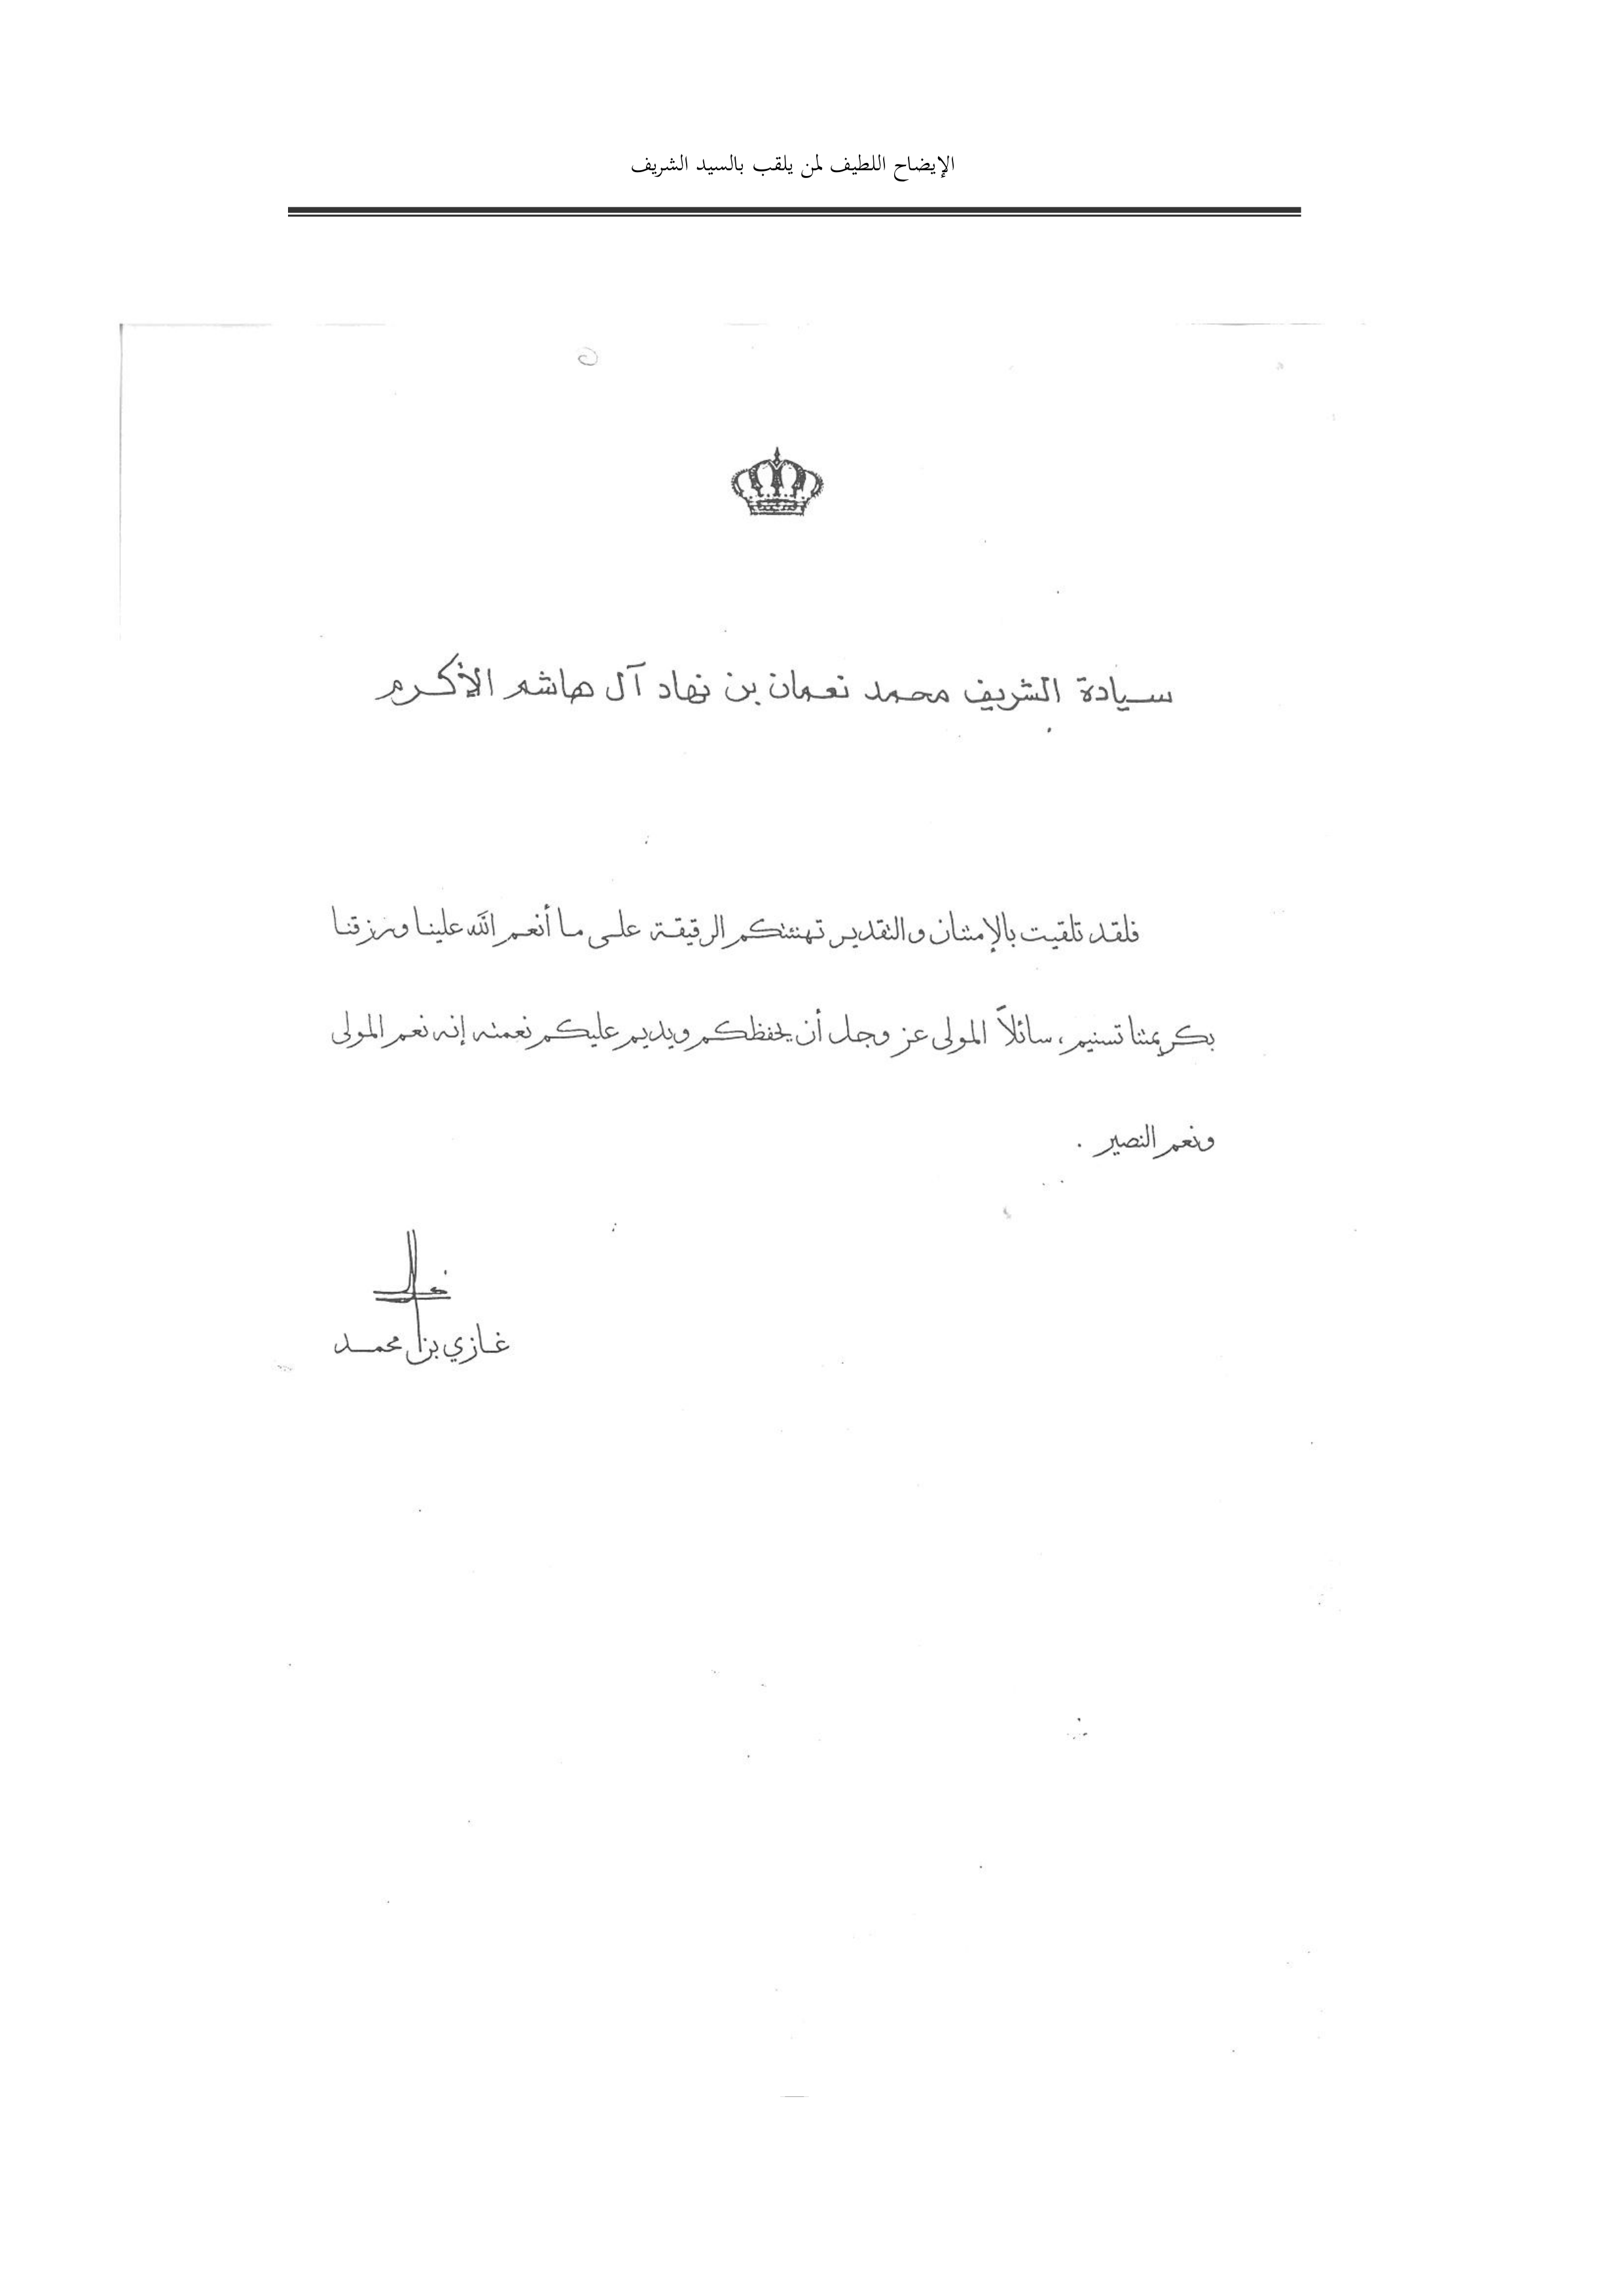 الإيضاح اللطيف لمن يلقب بالسيد الشريف
سيادة الشريف محمد نعمان بن نهاد آل هاشم الأكرم
فلقد تلقيت بالإمتنان والتقدير تهنئتكم الرقيقة على ما أنعم الله علينا ورزقنا
بكريمتنا تسنيم، سائلاً المولى عز وجل أن يحفظكم ويديم عليكم نعمته إنه نعم المولى
ونعم النصير .
غازي بن محمد